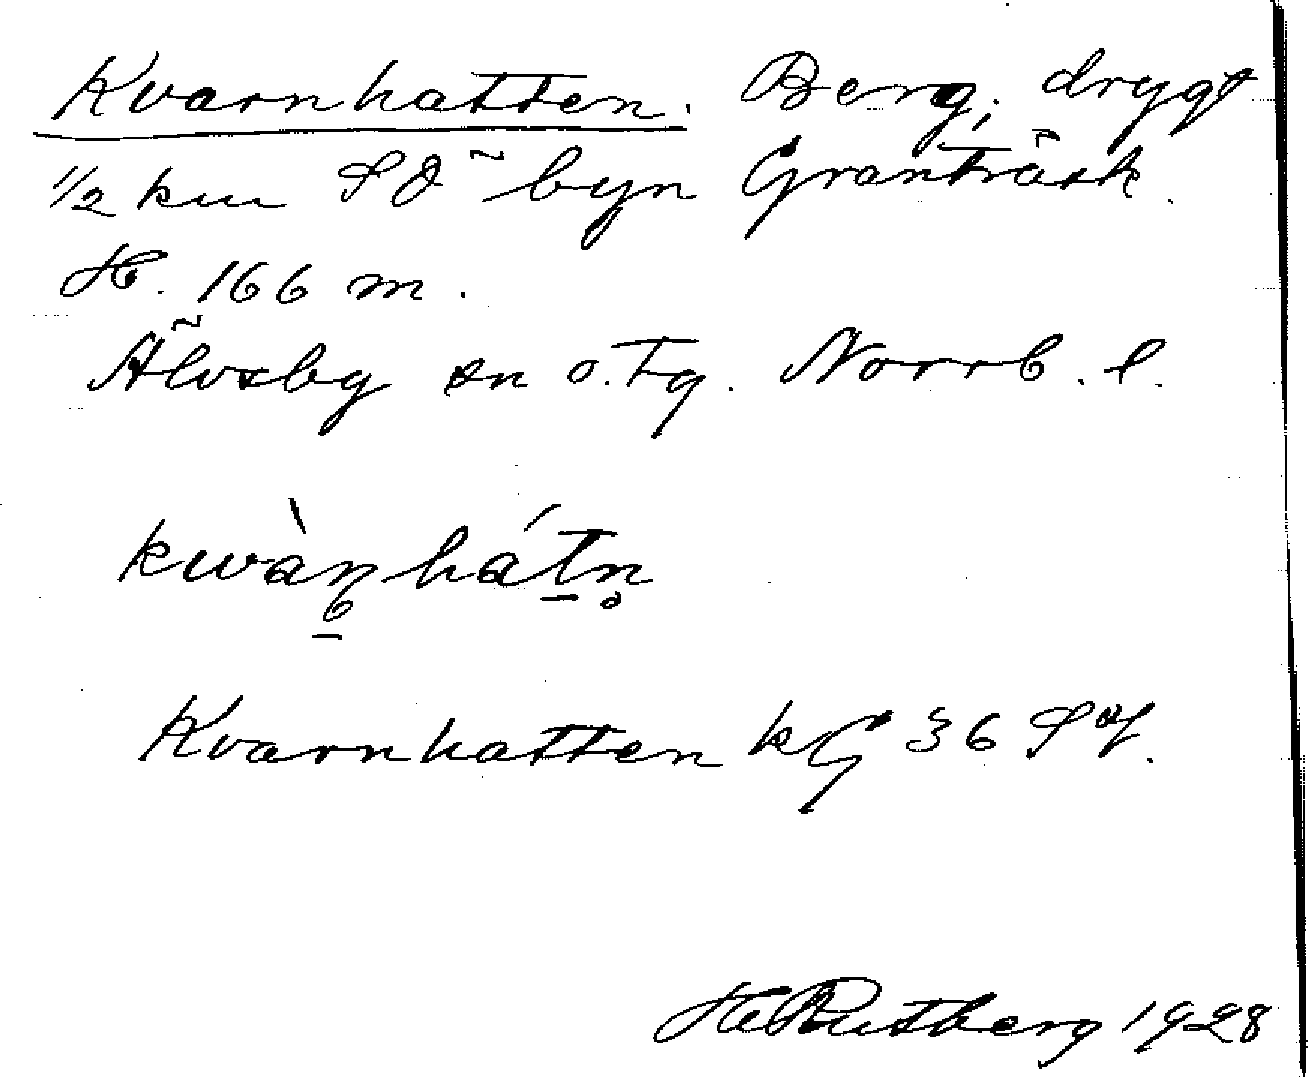 Kvarnhatten. Berg, drygt
1/2 km SÖ byn Granträsk.
H. 166 m.
Älvsby sn o. Tg. Norrb. l.
kwàn̠hát̠n̥
Kvarnhatten kG 36
H Rutberg 1928